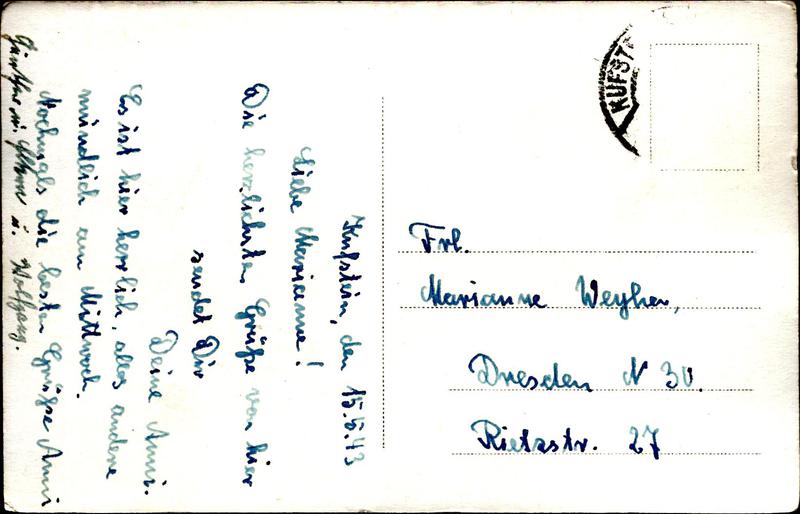 Kufstein, den 15.5.43
Liebe Marianne!
Die herzlichsten Grüße von hier
sendet Dir
Deine Anni.
Es ist hier herrlich, alles andere
mündlich am Mittwoch.
Nochmals die besten Grüße Anni
u. Wolfgang.
KUFST
Frl.
Marianne Weyher,
Dresden N 30.
Rietzstr. 27